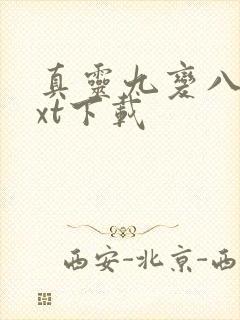 真靈九變八
xt下載
西安-北京-西